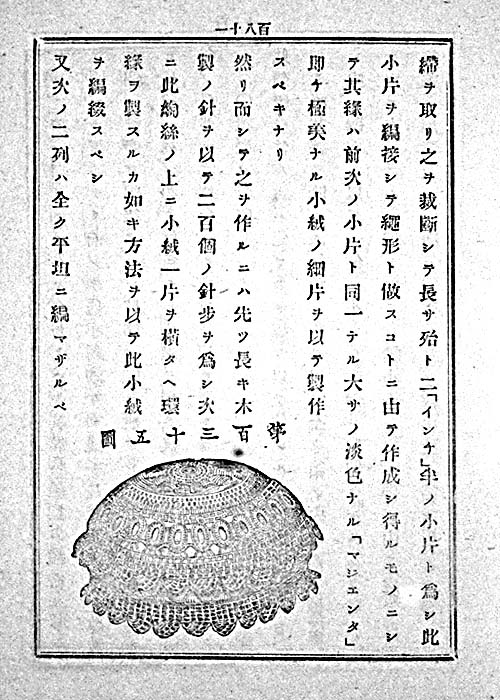 百八十一
緒ヲ取リ之ヲ裁斷シテ長サ殆ト二「インチ」半ノ小片ト爲シ此
小片ヲ編接シテ繩形ト做スコトニ由テ作成シ得ルモノニシ
テ其緣ハ前次ノ小片ト同一テル大サノ淡色ナル「マジエンタ」
即チ極美ナル小絨ノ細片ヲ以テ製作
スベキナリ
然リ而シテ之ヲ作ルニハ先ツ長キ木
製ノ針ヲ以テ二百個ノ針歩ヲ爲シ次
ニ此絢絲ノ上ニ小絨一片ヲ橫タヘ環
緣ヲ製スルカ如キ方法ヲ以テ此小絨
ヲ編綴スベシ
又次ノ二列ハ全ク平坦ニ編マザルベ
第百三十五圖